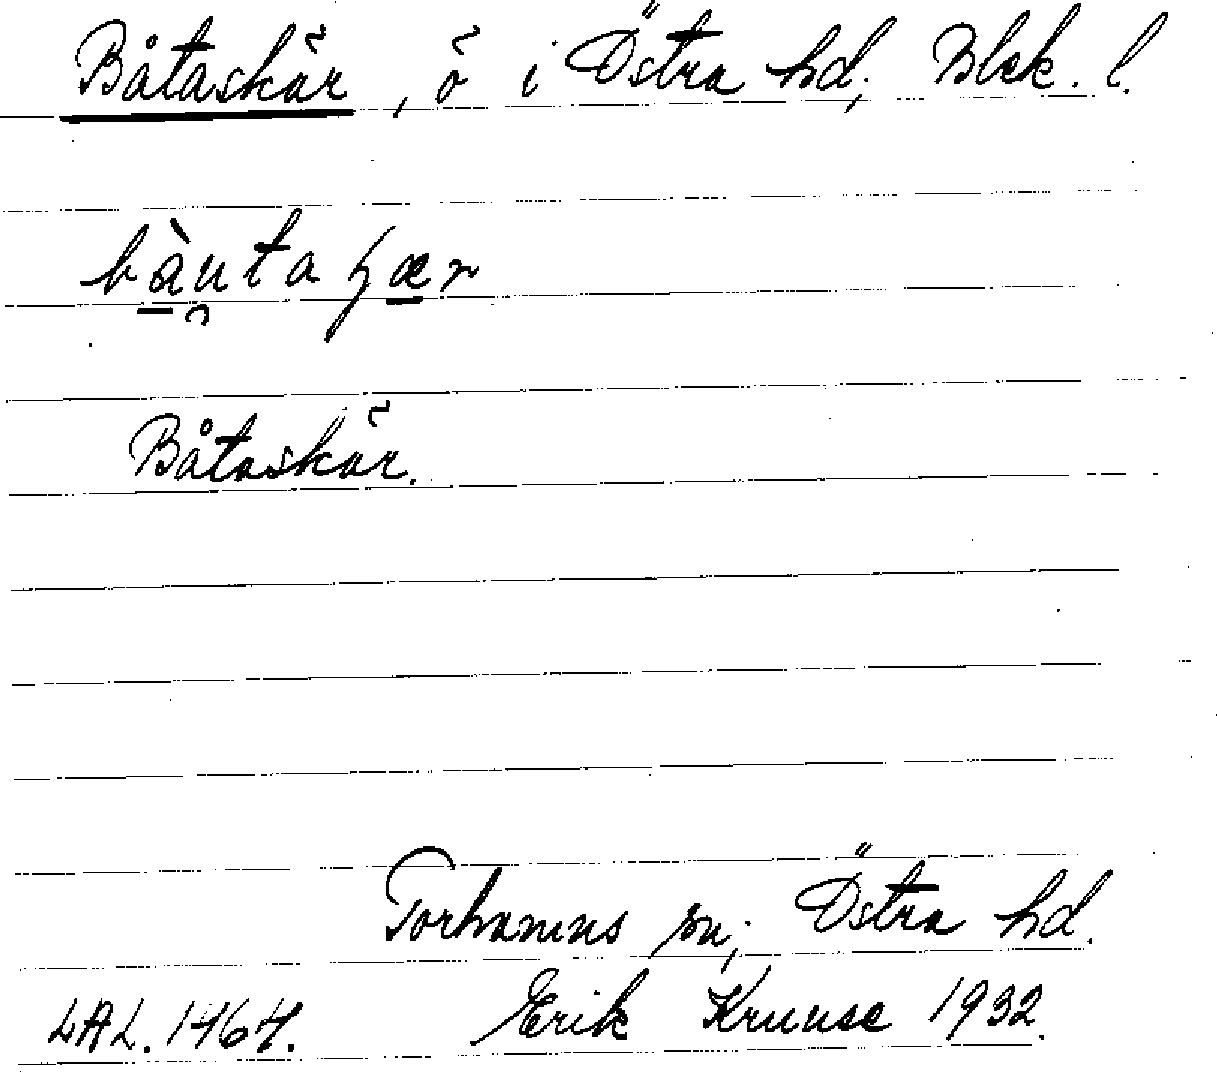 Båtaskär, ö i Östra hd; Blek. l.
Båtaskär.
Torhamns sn; Östra hd.
LAL. 1464. Erik Kruuse 1932.